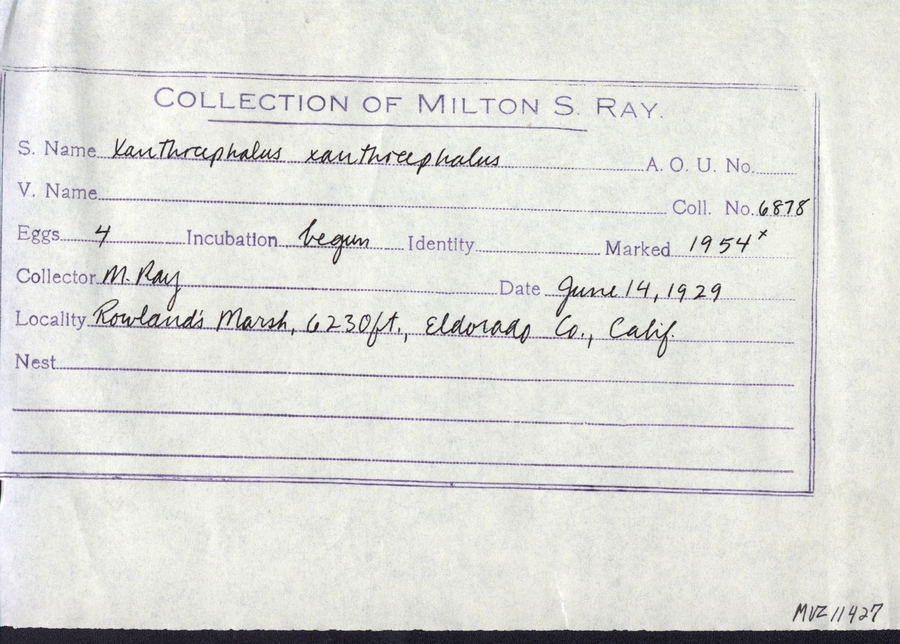 COLLECTION OF MILTON S. RAY.
S. Name Xanthocephalus xanthocephalus A. O. U. No.
V. Name Coll. No. 6878
Eggs 4 Incubation begun Identity Marked 1954x
Collector M. Ray Date June 14, 1929
Locality Rowland's Marsh, 6230ft., Eldorado Co., Calif.
Nest
MVZ 11427